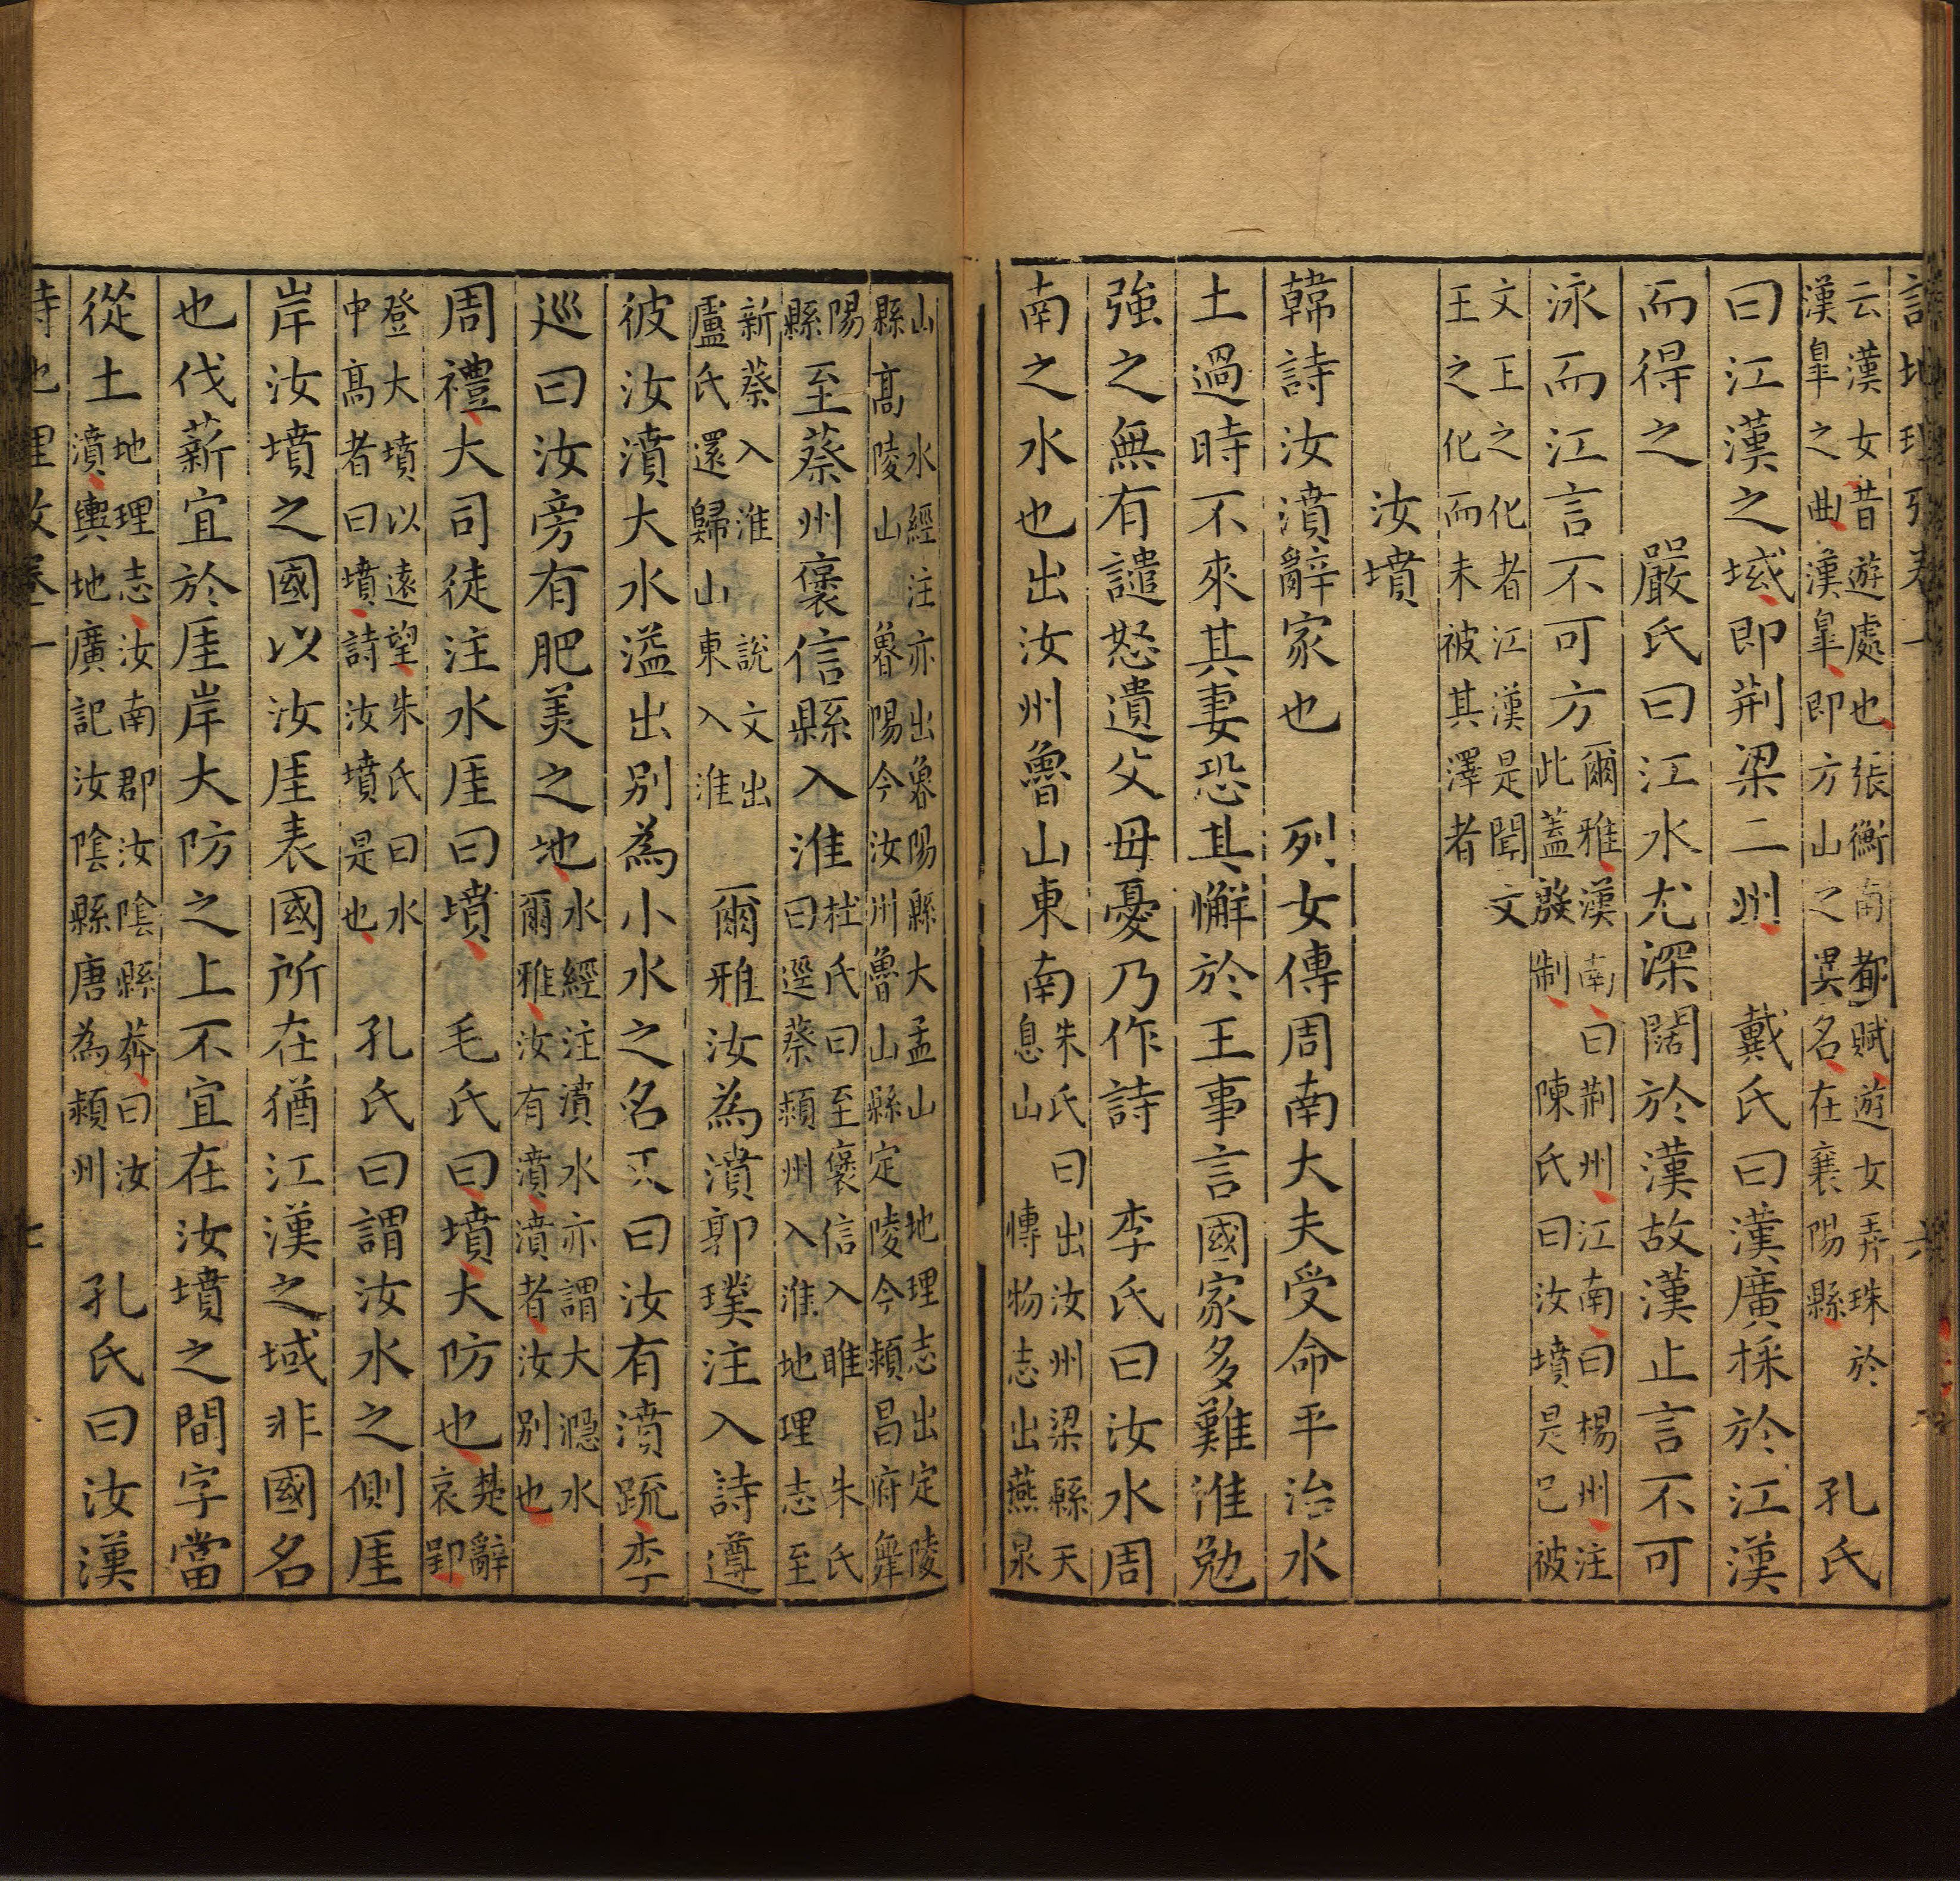 詩地理攷卷一　六
云漢女昔遊處也張衡南都賦遊女弄珠於
漢皐之曲漢皐即方山之異名在襄陽縣　孔氏
曰江漢之域即荆梁二州　戴氏曰漢廣採於江漢
而得之　嚴氏曰江水尤深闊於漢故漢止言不可
泳而江言不可方爾雅漢南曰荆州江南曰楊州注
此蓋殷制　陳氏曰汝墳是已被
文王之化者江漢是聞文
王之化而未被其澤者
汝墳
韓詩汝濆辭家也　列女傳周南大夫受命平治水
土過時不來其妻恐其懈於王事言國家多難淮勉
強之無有譴怒遺父母憂乃作詩　李氏曰汝水周
南之水也出汝州魯山東南朱氏曰出汝州梁縣天
息山　愽物志出燕泉
山　水經注亦出魯陽縣大孟山　地理志出定陵
縣高陵山　魯陽今汝州魯山縣定陵今潁昌府舞
陽
縣至蔡州褒信縣入淮杜氏曰至褒信入睢　朱氏
曰逕蔡潁州入淮地理志至
新蔡入淮　說文出
盧氏還歸山東入淮　爾雅汝為濆郭璞注入詩遵
彼汝濆大水溢出別為小水之名又曰汝有濆疏李
巡曰汝旁有肥美之地水經注濆水亦謂大㶏水
爾雅汝有濆濆者汝別也
周禮大司徒注水厓曰墳　毛氏曰墳大防也楚辭
哀郢
登大墳以遠望朱氏曰水
中高者曰墳詩汝墳是也　孔氏曰謂汝水之側厓
岸汝墳之國以汝厓表國所在猶江漢之域非國名
也伐薪宜於厓岸大防之上不宜在汝墳之間字當
從土地理志汝南郡汝陰縣莽曰汝
濆輿地廣記汝陰縣唐為潁州　孔氏曰汝漢
詩地理攷卷一　七